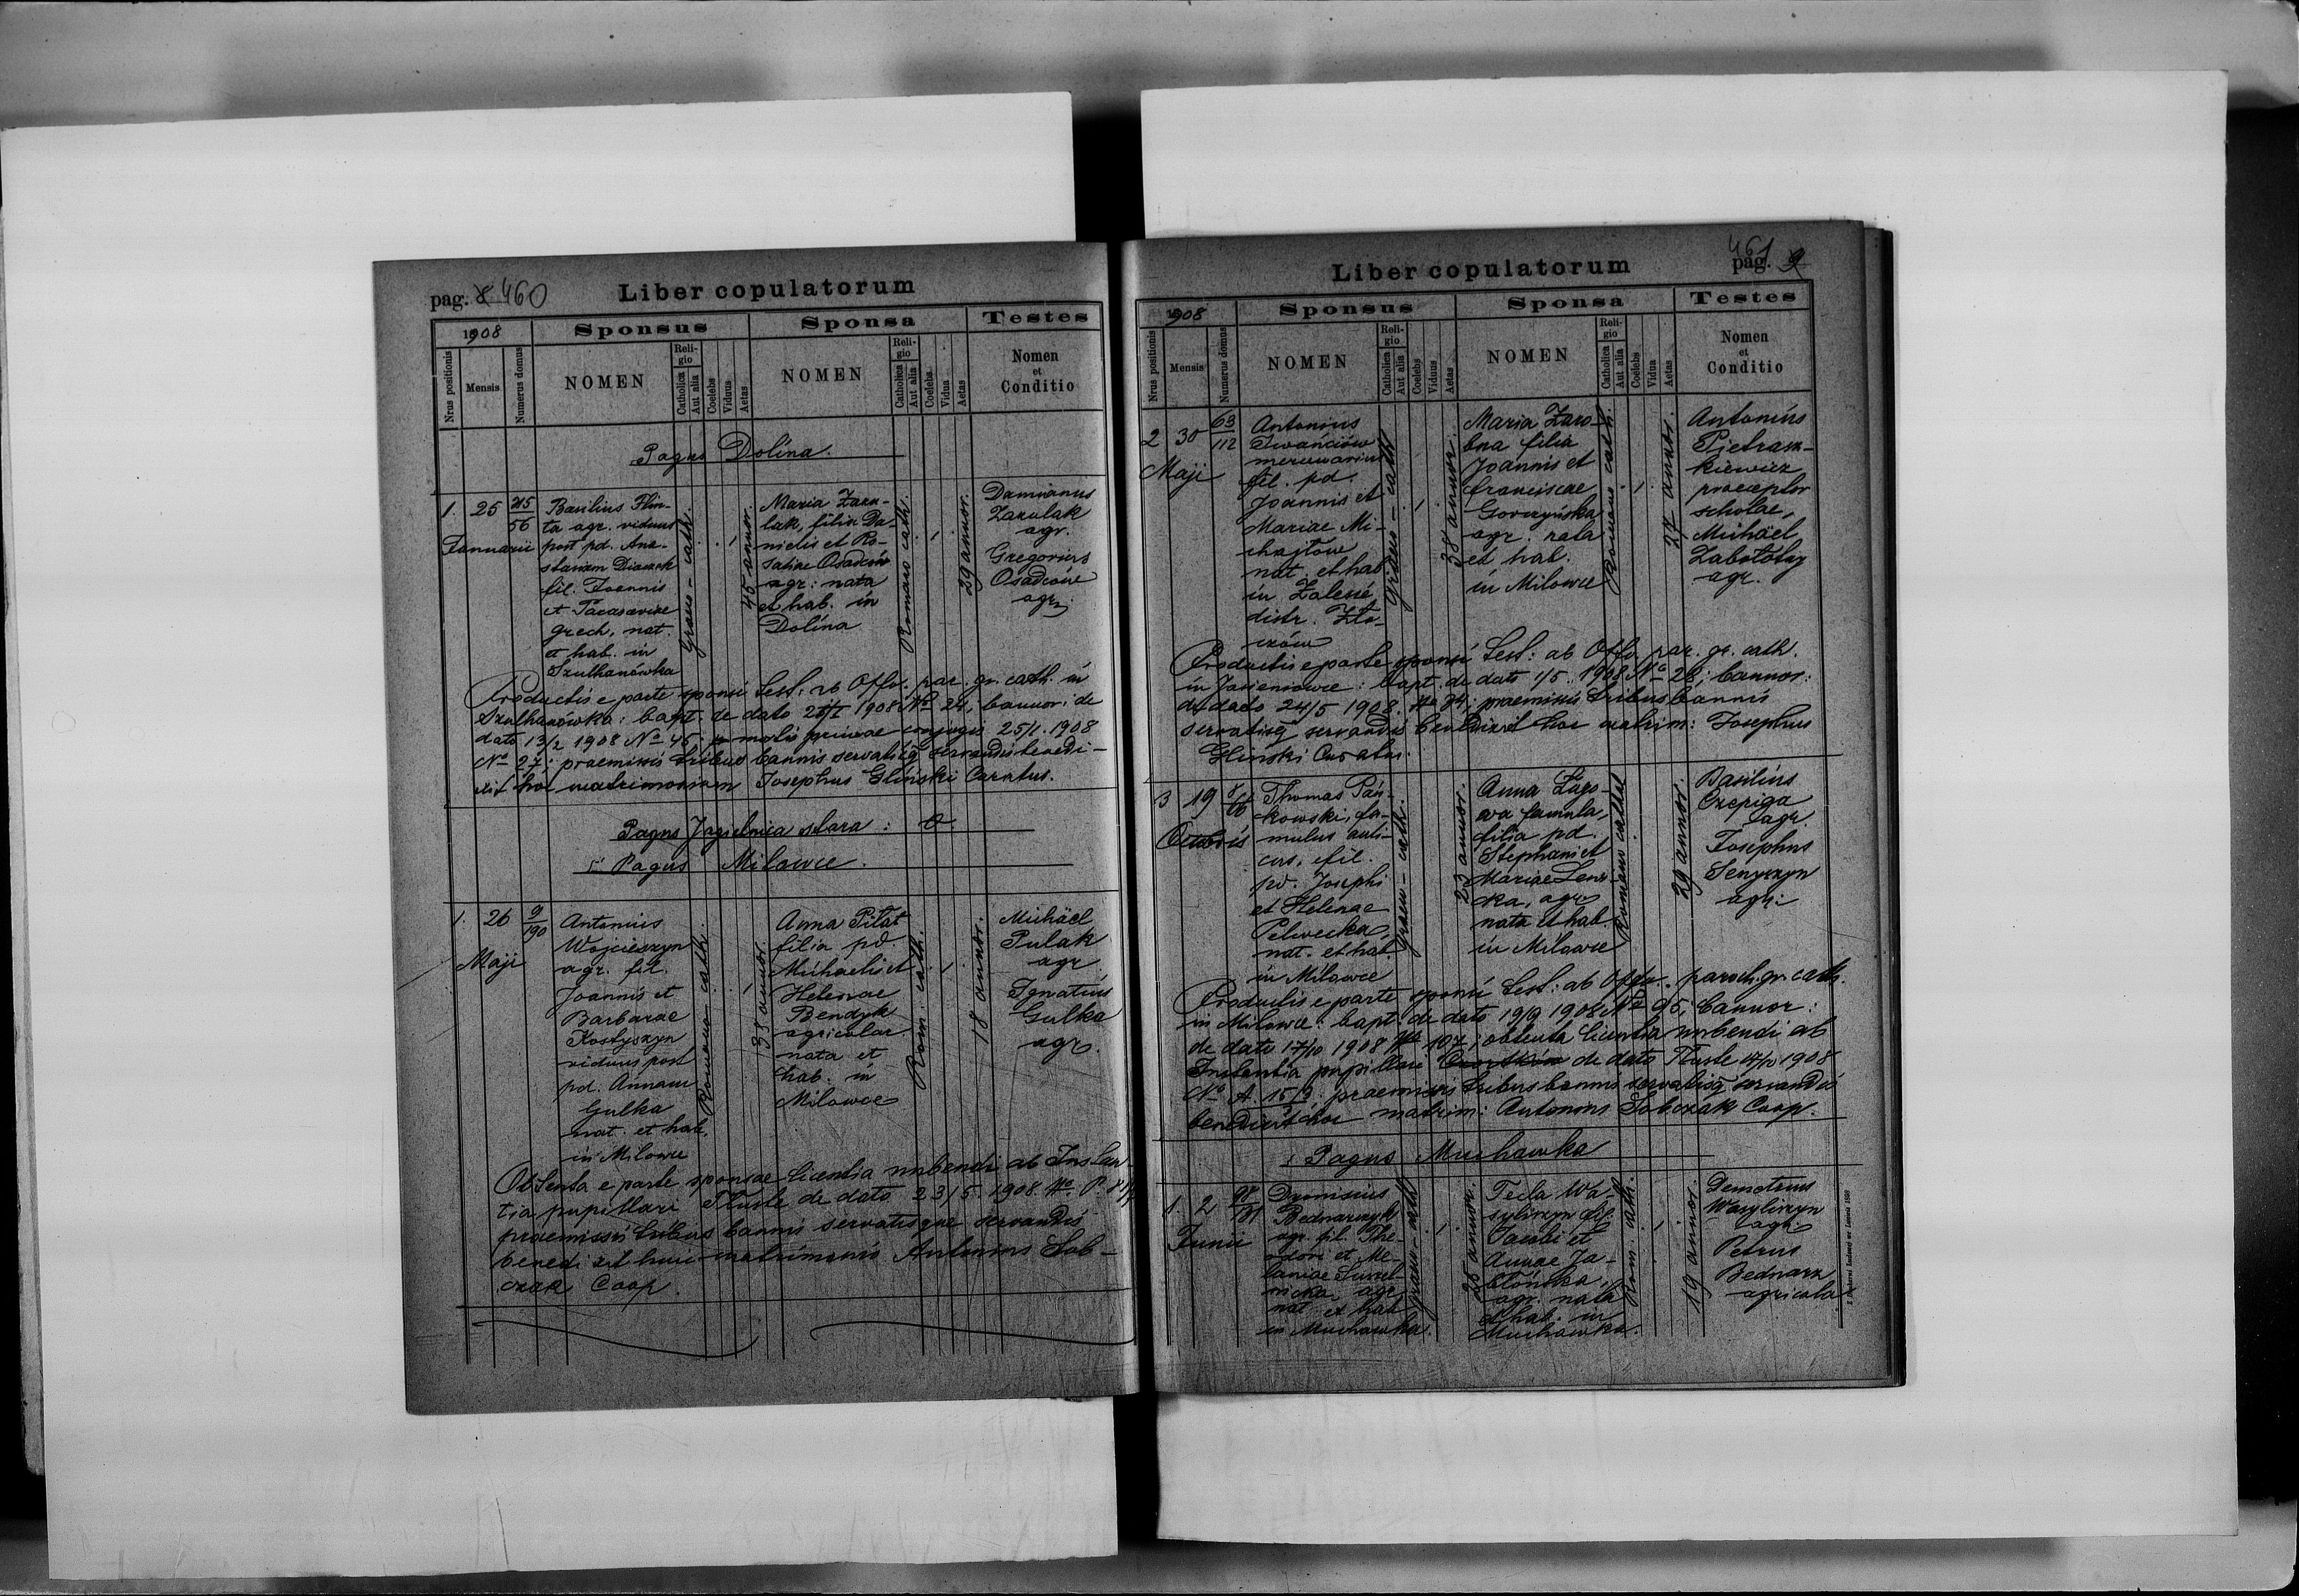 pag. 8 460
Liber copulatorum
1908
Sponsus
Sponsa
Testes
Nrus positionis
Mensis
Numerus domus
NOMEN
Religio
Catholica
Aut alia
Coelebs
Viduus
Aetas
NOMEN
Religio
Catholica
Aut alia
Coelebs
Vidua
Aetas
Nomen
et
Conditio
Pagus Dolina.
1. 25
56
Januarii
Basilius Flin-
ta agr. viduus
post pd. Ana-
stasiam
fil. Joannis
et
grech, nat.
et hab. in
Szulhanówka
Graeco-cath.
45 annor.
Maria Zaku-
lak, filia Da-
nielis et Ro-
saliae Osadców
agr: nata
et hab. in
Dolina
Romano cath.
29 annor.
Damianus
Zakulak
agr.
Gregorius
Osadców
agr.
Productis e parte sponsi test. ab Offo. par. gr. cath. in
Szulhanówka: bapt. de dato 25/I 1908 No 24, bannor: de
dato 13/2 1908 No 45, mortis primae conjugis 25/1. 1908
No 27; praemissis tribus bannis servatisq servandis benedi-
xit hoc matrimonium Josephus Gliński Curatus.
Pagus Jagielnica stara:
Pagus Milowce.
1. 26 9
190
Maji
Antonius
Wojcieszyn
agr. fil.
Joannis et
Barbarae
Kostyszyn
viduus post
pd. Annam
Gulka
nat. et hab.
in Milowce
Romano cath.
38 annor.
Anna Pilat
filia pd.
Michaelis et
Helenae
Bendyk
agricolar
nata et
hab. in
Milowce
Rom. cath.
18 annor.
Michäel
Pulak
agr
Ignatius
Gulka
agr.
Obtenta e parte sponsae licentia nubendi ab Instan-
tia pupillari Tłuste de dato 23/5. 1908. No. P.
praemissis tribus bannis servatisque servandis
benedixit huic matrimonio Antonius Sob-
czak Coop.
461
pag. 9
Liber copulatorum
1908
Sponsus
Sponsa
Testes
Nrus positionis
Mensis
Numerus domus
NOMEN
Religio
Catholica
Aut alia
Coelebs
Viduus
Aetas
NOMEN
Religio
Catholica
Aut alia
Coelebs
Vidua
Aetas
Nomen
et
Conditio
2 30 63
112
Maji
Antonius
Iwańciów
mercenarius
fil. pd.
Joannis et
Mariae Mi-
chajłow
nat. et hab
in Zalesie
distr. Zło-
czów
Graeco-cath
38 annor.
Maria Zaro-
bna filia
Joannis et
Franciscae
Gorczyńska
agr. nata
et hab.
in Milowce
Romano cath.
27 annor.
Antonius
Pietrasz-
kiewicz
praeceptor
scholae,
Michäel
Zabołotny
agr.
Productis e parte sponsi test: ab Offo par. gr. cath.
in Jasieniowce: bapt. de dato 1/5. 1908 No 28; bannor:
de dato 24/5 1908. No 34; praemissis tribus bannis
servatisq servandis benedixit hoc matrim: Josephus
Gliński Curatus.
3 19
66
Octobris
Thomas Pań-
kowski, fa-
mulus auli-
cus, fil.
pd. Josephi
et Helenae
Pelwecka,
nat. et hab.
in Milowce
Graeco-cath.
23 annor.
Anna Łago-
wa famula,
filia pd.
Stephani et
Mariae
agr.
nata et hab.
in Milowce
29 annor.
Basilius
Czepiga
agr.
Josephus
Senyszyn
agr.
Productis e parte sponsi test: ab Offo. paroch. gr. cath.
in Milowce: bapt: de dato 19/9 1908 No 95, bannor:
de dato 17/10 1908, No 107; obtenta licentia nubendi ab
Instantia pupillari de dato Tłuste 17/10 1908
No A. 15/3; praemissis tribus bannis servatisq servandis
benedixit hoc matrim: Antonius Sobczak Coop.
Pagus Muchawka
1. 2 98
181
Junii
Dyonisius
Bednarczyk
agr. fil. The-
odori et Me-
laniae
agr.
nat. et hab
in Muchawka.
Graeco cath
25 annor.
Tecla Wa-
syliszyn fil.
Jacobi et
Annae Ja-
błońska,
agr. nata
et hab. in
Muchawka.
Rom. cath.
19 annor.
Demetrius
Wasyliszyn
agr.
Petrus
Bednarz
agricola